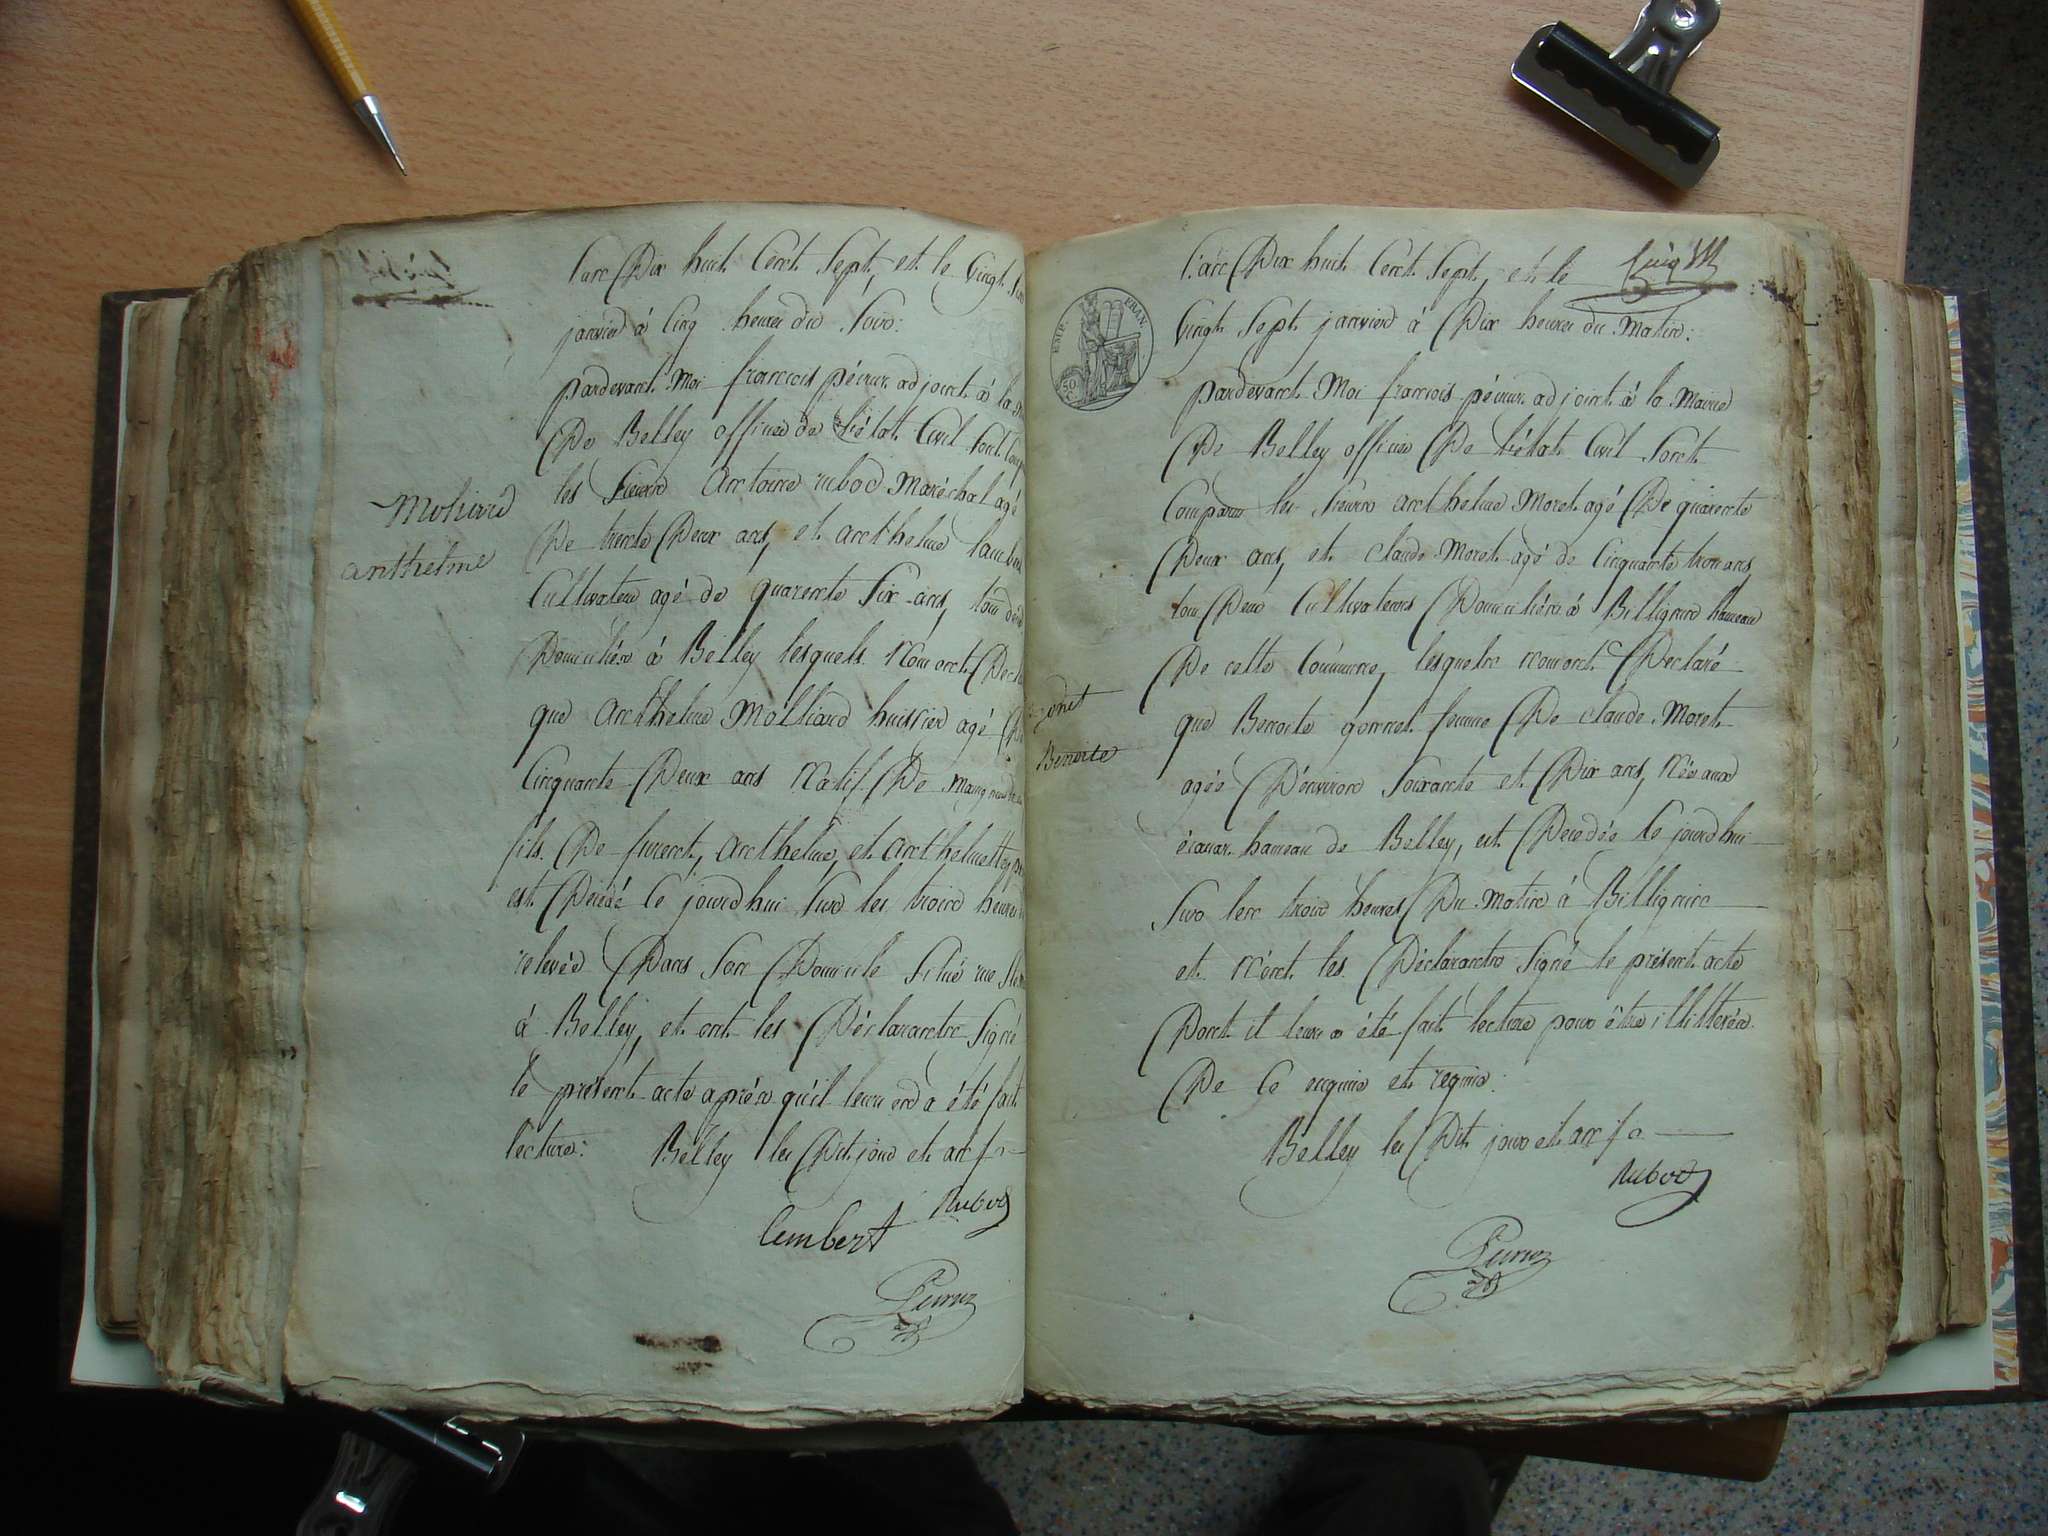 l'an Dix huit Cent Sept, et le Vingt
janvier à Cinq heures du Soir:
pardevant Moi francois pévruz adjoint à la
De Belley officier de l'état Civil Sont
les Sieurs Antoine rubod Maréchal agé
De trente Deux ans, et anthelme Lambert
Cultivateur agé de quarente Six ans, tous deux
Domiciliés à Belley lesquels Nous ont
que Anthelme Molliard huissier agé De
Cinquante Deux ans Natif De
fils De Anthelme, et Anthelmette
est Décédé Ce jourdhui Sur les trois heures
relevée Dans Son Domicile Situé rue
à Belley, et ont les Déclarants Signé
le présent acte après qu'il leur en a été fait
lecture: Belley les Dit jour et an
Rubod
Lembert
Moliard
anthelme
l'an Dix huit Cent Sept, et le
Vingt Sept janvier à Dix heures du Matin:
EMP. FRAN.
50
C.
pardevant Moi francois pévruz adjoint à la Mairie
De Belley officier De l'état Civil Sont
Comparus les Sieurs anthelme Moret agé De quarente
Deux ans, et Claude Moret agé de Cinquante trois ans,
tous Deux Cultivateurs Domiciliés à Billignin hameau
De cette Commune, lesquels Nous ont Déclaré
que Benoite gonnet femme De Claude Moret
agée D'environ Soixante et Dix ans, Née aux
écassaz hameau de Belley, est Décédée Ce jourdhui
Sur les trois heures Du Matin à Billignin
et N'ont les Déclarants Signé le présent acte
Dont il leur a été fait lecture pour être illittérés
De Ce enquis et requis:
Belley les Dit jour et an
Rubod
gonet
Benoite